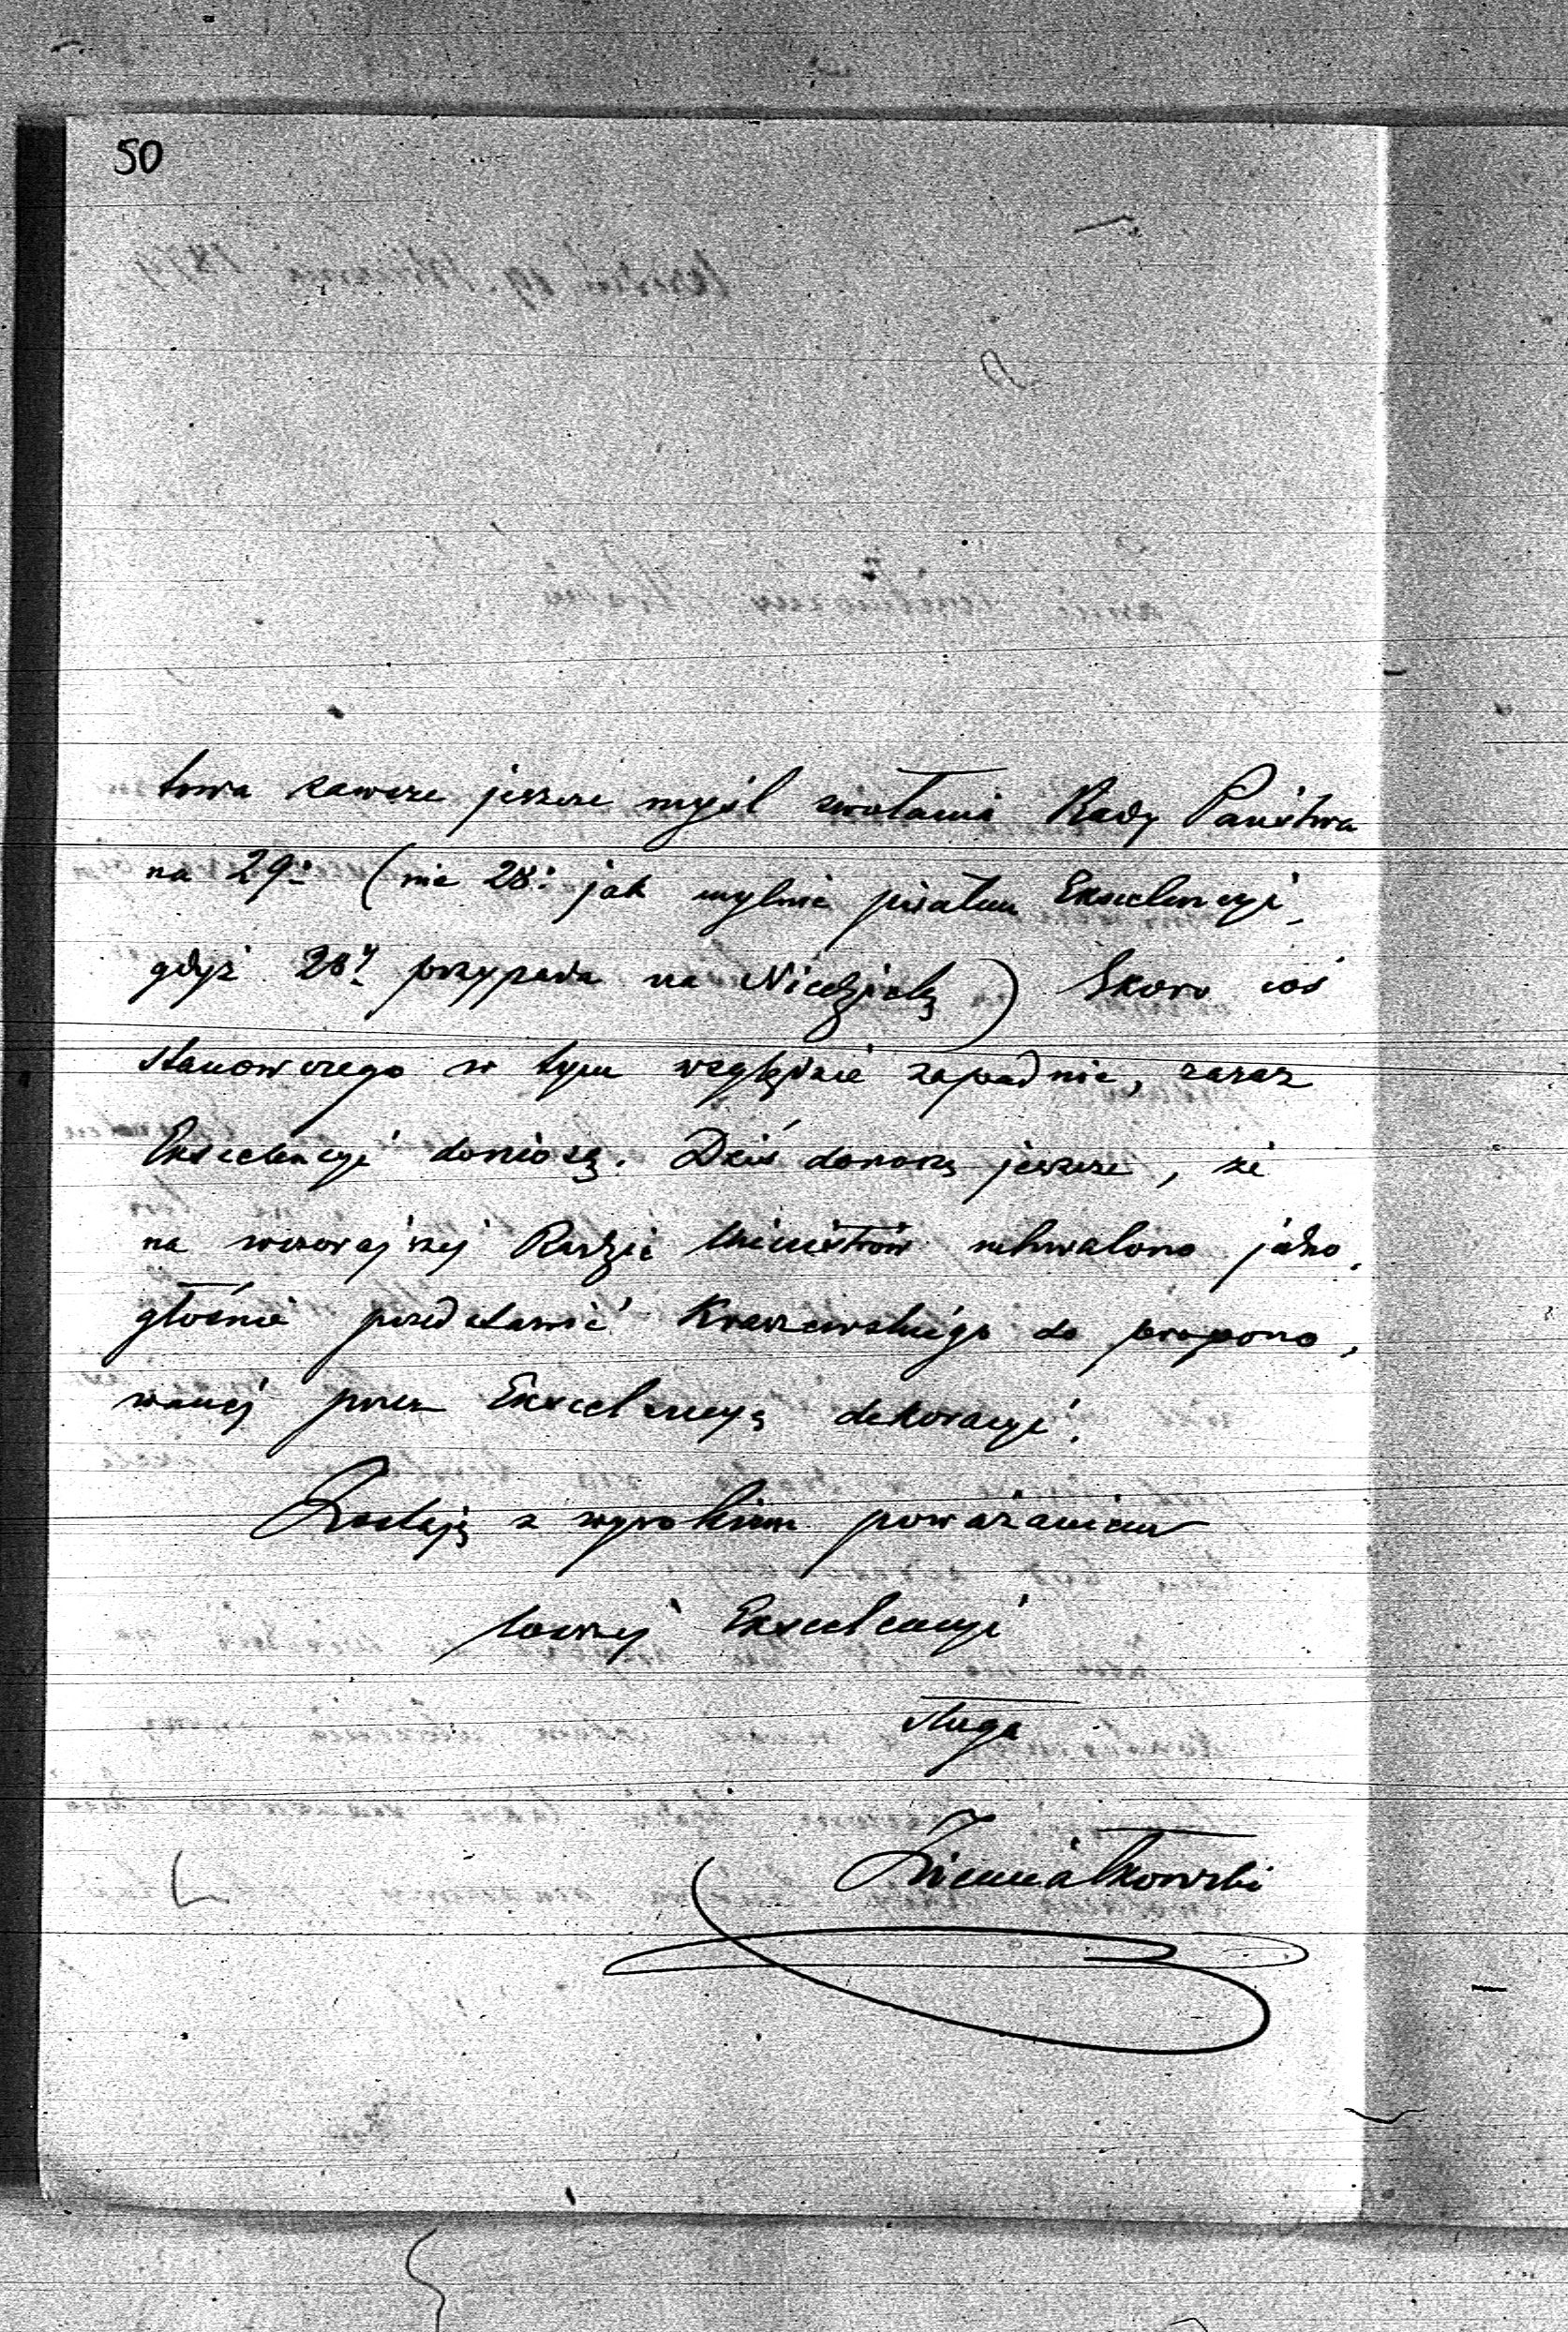 50
towa zawsze jeszcze myśl zwołania Rady Państwa
na 29: (nie 28: jak mylnie pisałem Ekscelencyi,
gdyż 28y przypada na Niedzielę) Skoro coś
stanowczego w tym względzie zapadnie, zaraz
Ekscelencyi doniosę. Dziś donoszę jeszcze, że
na wczorajszej Radzie Ministrów uchwalono jedno,
głośnie przedstawić Kraszewskiego do propono,
wanéj przez Ekscelencyę dekoracyi.
Zostaję z wysokiem poważaniem
Waszej Ekscelencyi
sługa
Ziemiałkowski